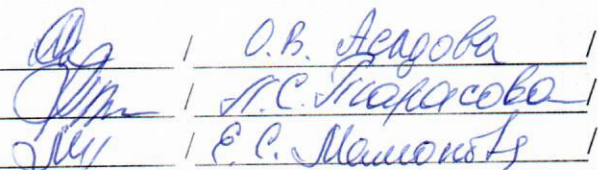 / О.В. Асадова /
/ Л.С. Тарасова /
/ Е.С. Мамонова /